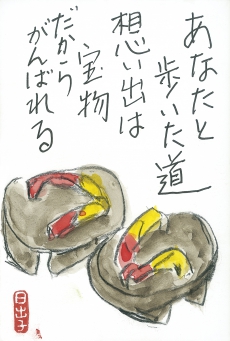 あなたと
歩いた道
想い出は
宝物
だから
がんばれる
日出子